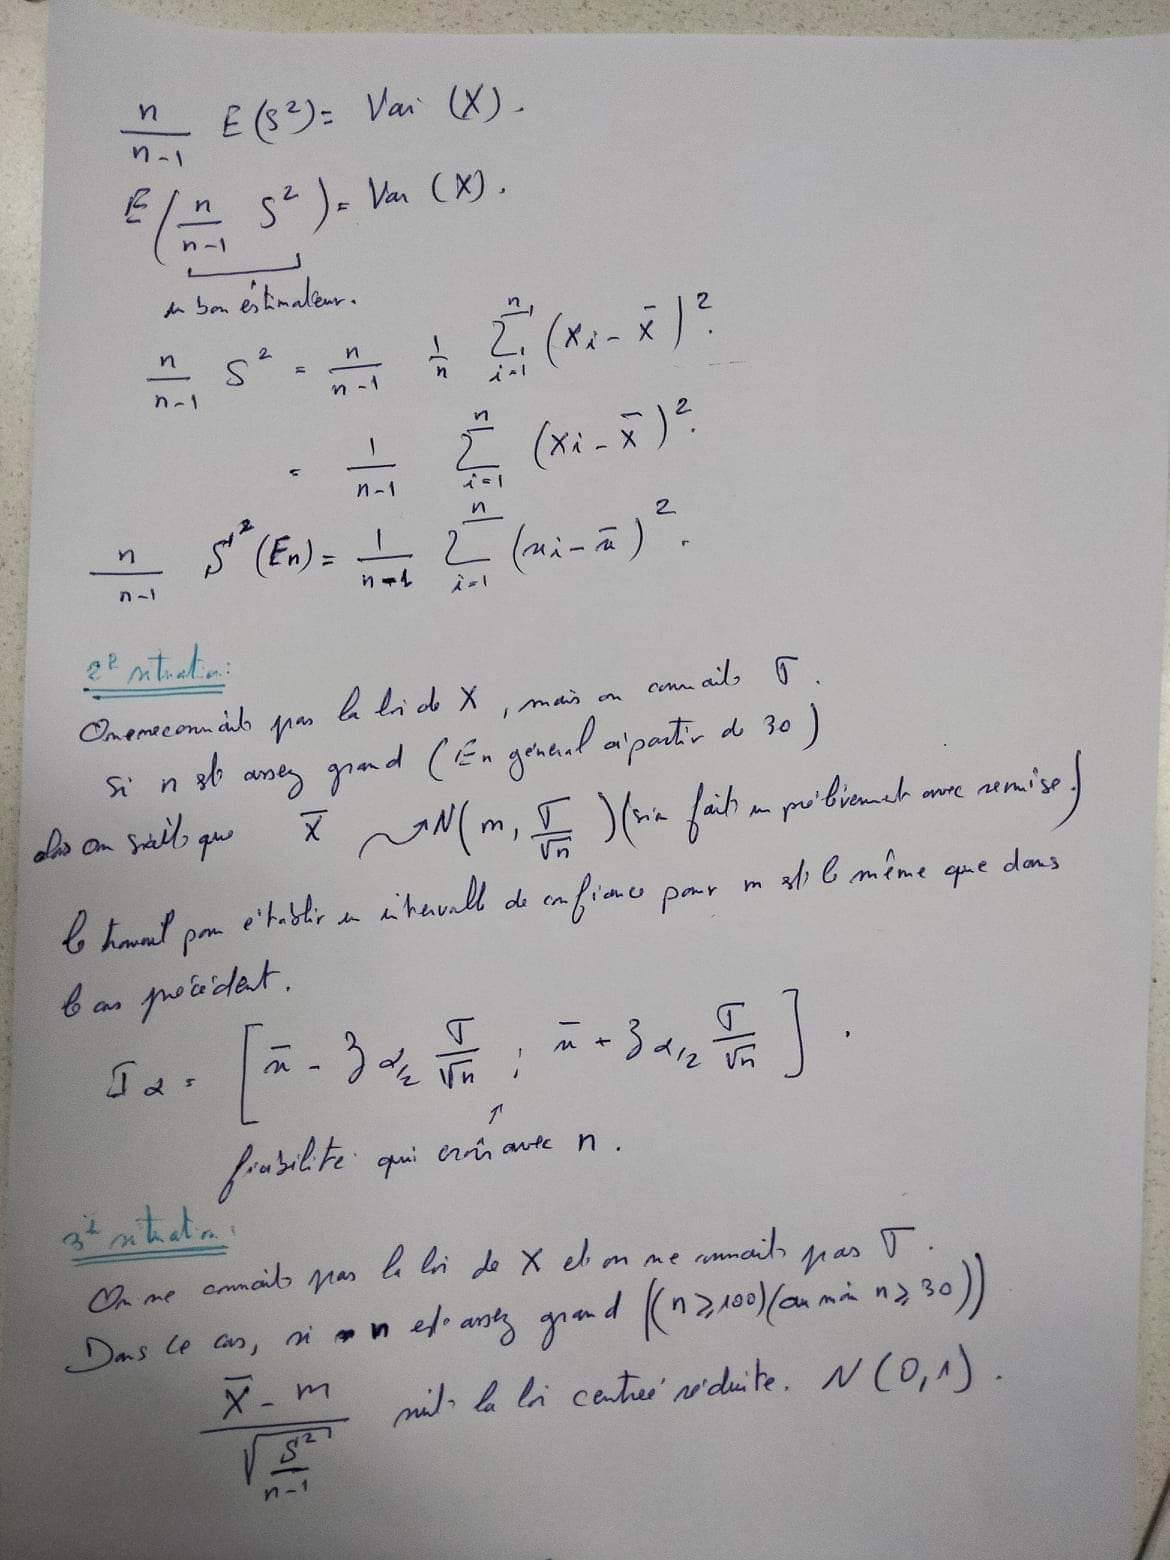 n/(n-1) E(S²) = Var (X).
E( n/(n-1) S² ) = Var (X).
un bon éstimateur.
n/(n-1) S² = n/(n-1) 1/n Σ_{i=1}^{n} (Xi - X̄)².
= 1/(n-1) Σ_{i=1}^{n} (Xi - X̄)².
n/(n-1) S'²(En) = 1/(n-1) Σ_{i=1}^{n} (xi - x̄)².
2e situation:
On ne connait pas la loi de X, mais on connait σ.
Si n est assez grand (En général à partir de 30)
alors on sait que X̄ ⤳ N(m, σ/√n) (si on fait un prélèvement avec remise.)
le travail pour établir un intervalle de confiance pour m est le même que dans
le cas précédent.
Iα = [ x̄ - z α/2 σ/√n ; x̄ + z α/2 σ/√n ].
↑
fiabilité qui croît avec n.
3e situation:
On ne connait pas la loi de X et on ne connait pas σ.
Dans ce cas, si n est assez grand ((n ≥ 100) (au min n ≥ 30))
(X̄ - m)/√(S²/(n-1)) suit la loi centrée réduite. N(0,1).